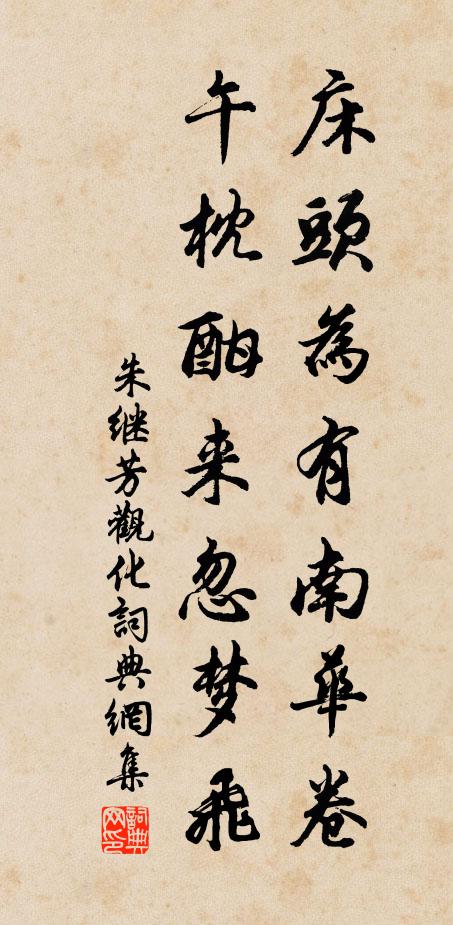 床頭為有南華卷
午枕酣来忽梦飛
朱继芳觀化詞典網集
詞典网印